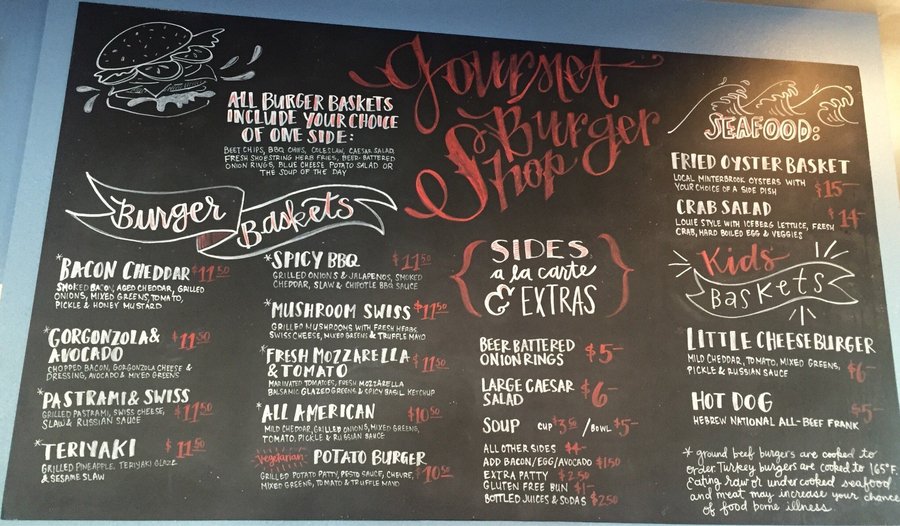 Gourmet
Burger
Shop
ALL BURGER BASKETS
INCLUDE YOUR CHOICE
OF ONE SIDE:
BEET CHIPS, BBQ CHIPS, COLESLAW, CAESAR SALAD,
FRESH SHOESTRING HERB FRIES, BEER-BATTERED
ONION RINGS, BLUE CHEESE POTATO SALAD OR
THE SOUP OF THE DAY
Burger Baskets
*BACON CHEDDAR $11.50
SMOKED BACON, AGED CHEDDAR, GRILLED
ONIONS, MIXED GREENS, TOMATO,
PICKLE & HONEY MUSTARD
*GORGONZOLA &
AVOCADO $11.50
CHOPPED BACON, GORGONZOLA CHEESE &
DRESSING, AVOCADO & MIXED GREENS
*PASTRAMI & SWISS
GRILLED PASTRAMI, SWISS CHEESE, $11.50
SLAW & RUSSIAN SAUCE
*TERIYAKI $11.50
GRILLED PINEAPPLE, TERIYAKI GLAZE
& SESAME SLAW
*SPICY BBQ $11.50
GRILLED ONIONS & JALAPENOS, SMOKED
CHEDDAR, SLAW & CHIPOTLE BBQ SAUCE
*MUSHROOM SWISS $11.50
GRILLED MUSHROOMS WITH FRESH HERBS,
SWISS CHEESE, MIXED GREENS & TRUFFLE MAYO
*FRESH MOZZARELLA
& TOMATO $11.50
MARINATED TOMATOES, FRESH MOZZARELLA
BALSAMIC GLAZED GREENS & SPICY BASIL KETCHUP
*ALL AMERICAN $10.50
MILD CHEDDAR, GRILLED ONIONS, MIXED GREENS,
TOMATO, PICKLE & RUSSIAN SAUCE
vegetarian POTATO BURGER
GRILLED POTATO PATTY, PESTO SAUCE, CHEVRE, $10.50
MIXED GREENS, TOMATO & TRUFFLE MAYO
SIDES
a la carte
& EXTRAS
BEER BATTERED
ONION RINGS $5-
LARGE CAESAR
SALAD $6-
SOUP CUP $3.50 / BOWL $5-
ALL OTHER SIDES $4-
ADD BACON/EGG/AVOCADO $1.50
EXTRA PATTY $2.50
GLUTEN FREE BUN $1-
BOTTLED JUICES & SODAS $2.50
SEAFOOD:
FRIED OYSTER BASKET
LOCAL MINTERBROOK OYSTERS WITH
YOUR CHOICE OF A SIDE DISH $15-
CRAB SALAD $14-
LOUIE STYLE WITH ICEBERG LETTUCE, FRESH
CRAB, HARD BOILED EGG & VEGGIES
Kids
BASKETS
LITTLE CHEESEBURGER
MILD CHEDDAR, TOMATO, MIXED GREENS,
PICKLE & RUSSIAN SAUCE $6-
HOT DOG $5-
HEBREW NATIONAL ALL-BEEF FRANK
* ground beef burgers are cooked to
order. Turkey burgers are cooked to 165°F.
Eating raw or undercooked seafood
and meat may increase your chance
of food borne illness